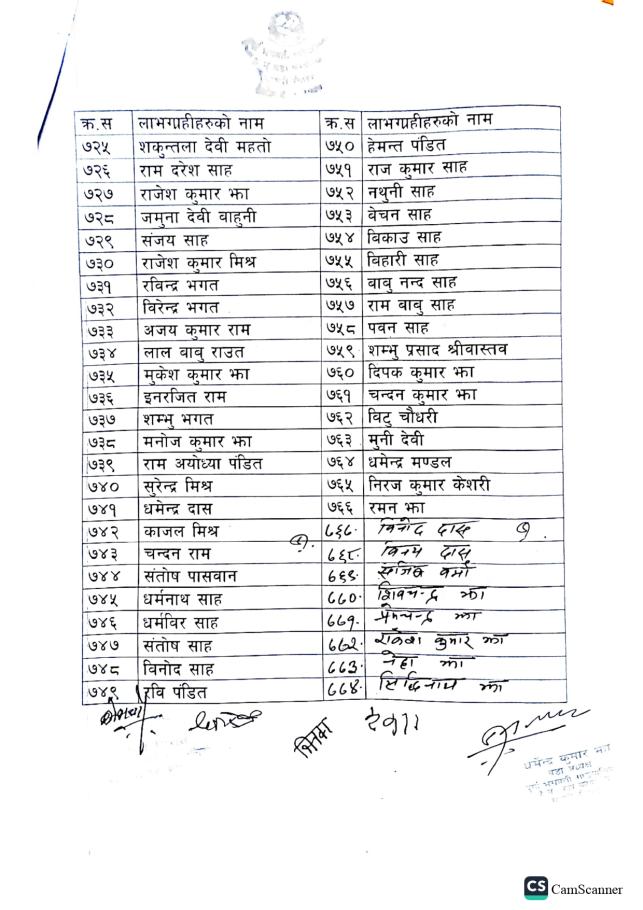 क्र.स लाभग्राहीहरुको नाम क्र.स लाभग्राहीहरुको नाम
७२५ शकुन्तला देवी महतो ७५० हेमन्त पंडित
७२६ राम दरेश साह ७५१ राज कुमार साह
७२७ राजेश कुमार झा ७५२ नथुनी साह
७२८ जमुना देवी वाहुनी ७५३ वेचन साह
७२९ संजय साह ७५४ विकाउ साह
७३० राजेश कुमार मिश्र ७५५ विहारी साह
७३१ रविन्द्र भगत ७५६ वावु नन्द साह
७३२ विरेन्द्र भगत ७५७ राम वावु साह
७३३ अजय कुमार राम ७५८ पवन साह
७३४ लाल वावु राउत ७५९ शम्भु प्रसाद श्रीवास्तव
७३५ मुकेश कुमार झा ७६० दिपक कुमार झा
७३६ इनरजित राम ७६१ चन्दन कुमार झा
७३७ शम्भु भगत ७६२ विटु चौधरी
७३८ मनोज कुमार झा ७६३ मुनी देवी
७३९ राम अयोध्या पंडित ७६४ धमेन्द्र मण्डल
७४० सुरेन्द्र मिश्र ७६५ निरज कुमार केशरी
७४१ धमेन्द्र दास ७६६ रमन झा
७४२ काजल मिश्र विनोद दास
७४३ चन्दन राम विनय दास
७४४ संतोष पासवान वर्मा
७४५ धर्मनाथ साह ७७०. शिवचन्द्र झा
७४६ धर्मविर साह ७७१. प्रेमचन्द्र झा
७४७ संतोष साह ७७२. राकेश कुमार झा
७४८ विनोद साह ७७३. नेहा झा
७४९ रवि पंडित ७७४. सिद्धिनाथ झा
धर्मेन्द्र कुमार झा
वडा अध्यक्ष
CS CamScanner